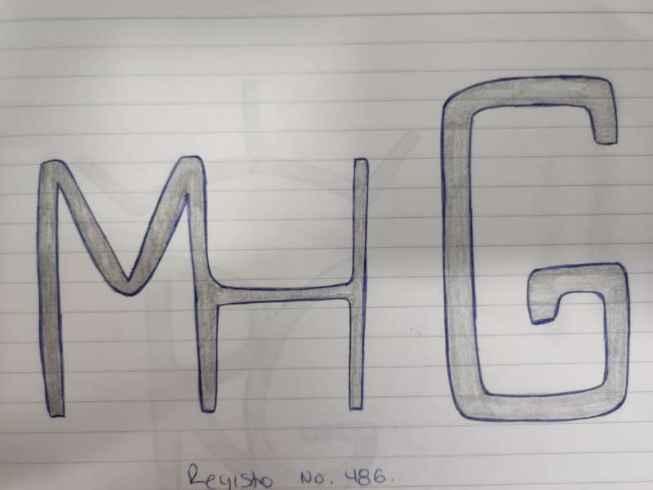 MHG
Registo No. 486.